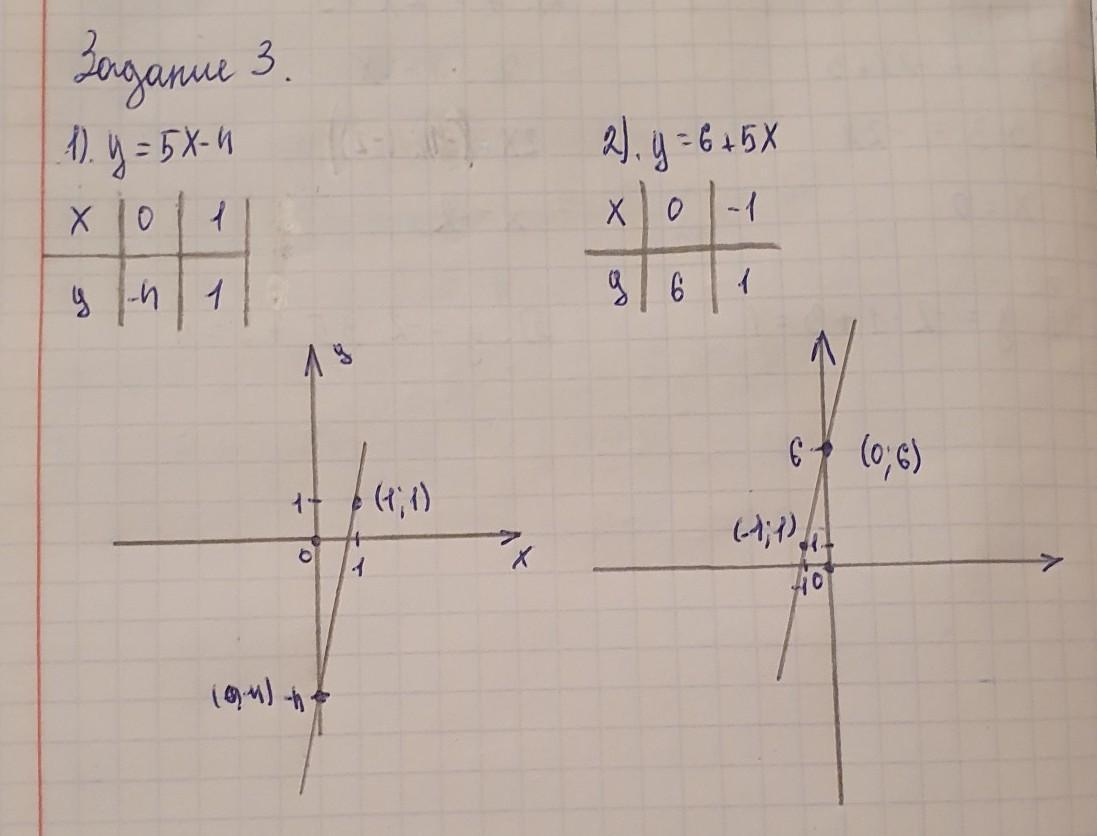 Задание 3.
1). y = 5x - 4
x 0 1
y -4 1
2). y = 6 + 5x
x 0 -1
y 6 1
y
1 (1; 1)
0 1 x
(0; -4) -4
6 (0; 6)
(-1; 1) 1
-1 0